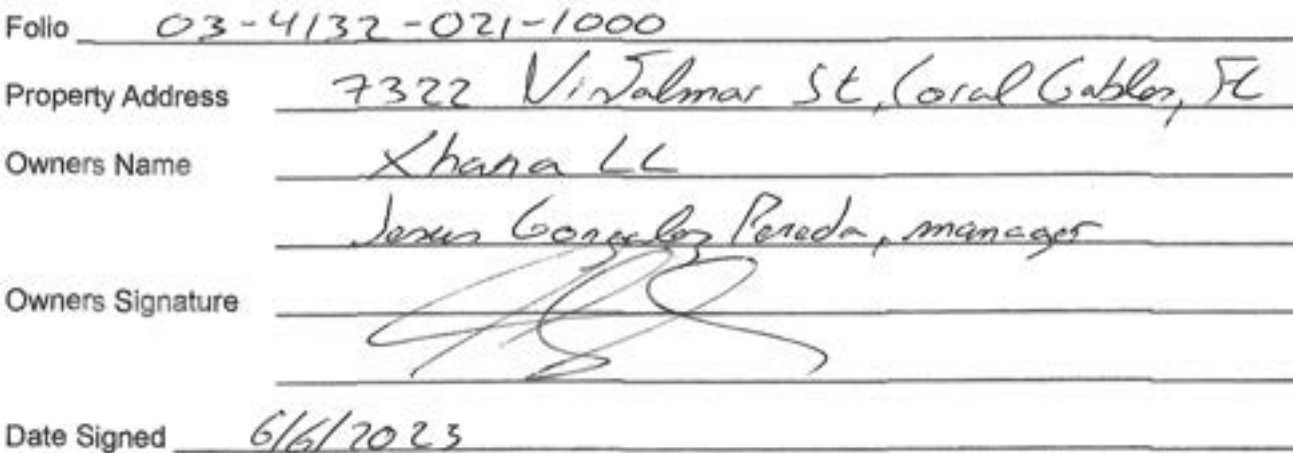 Folio 03-4132-021-1000
Property Address 7322 Vistalmar St, Coral Gables, FL
Owners Name Xhana LL
Jesus Gonzalez Pereda, manager
Owners Signature
Date Signed 6/6/2023